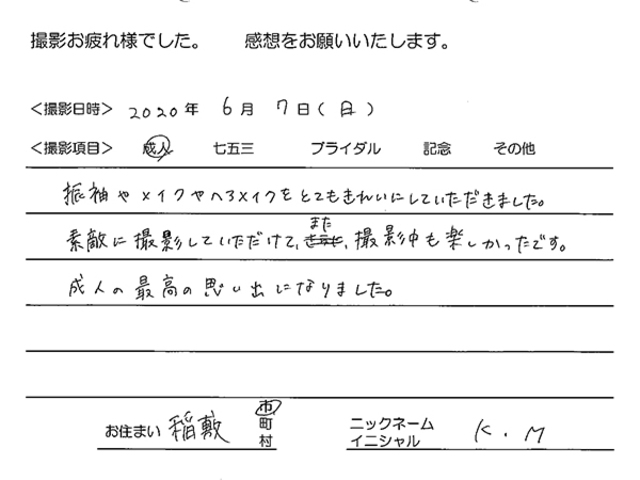 撮影お疲れ様でした。 感想をお願いいたします。
<撮影日時> 2020年 6月 7日(日)
<撮影項目> 成人 七五三 ブライダル 記念 その他
振袖やメイクやヘアメイクをとてもきれいにしていただきました。
また
素敵に撮影していただけて、、撮影中も楽しかったです。
成人の最高の思い出になりました。
お住まい 稲敷 市
町
村
ニックネーム
イニシャル K.M